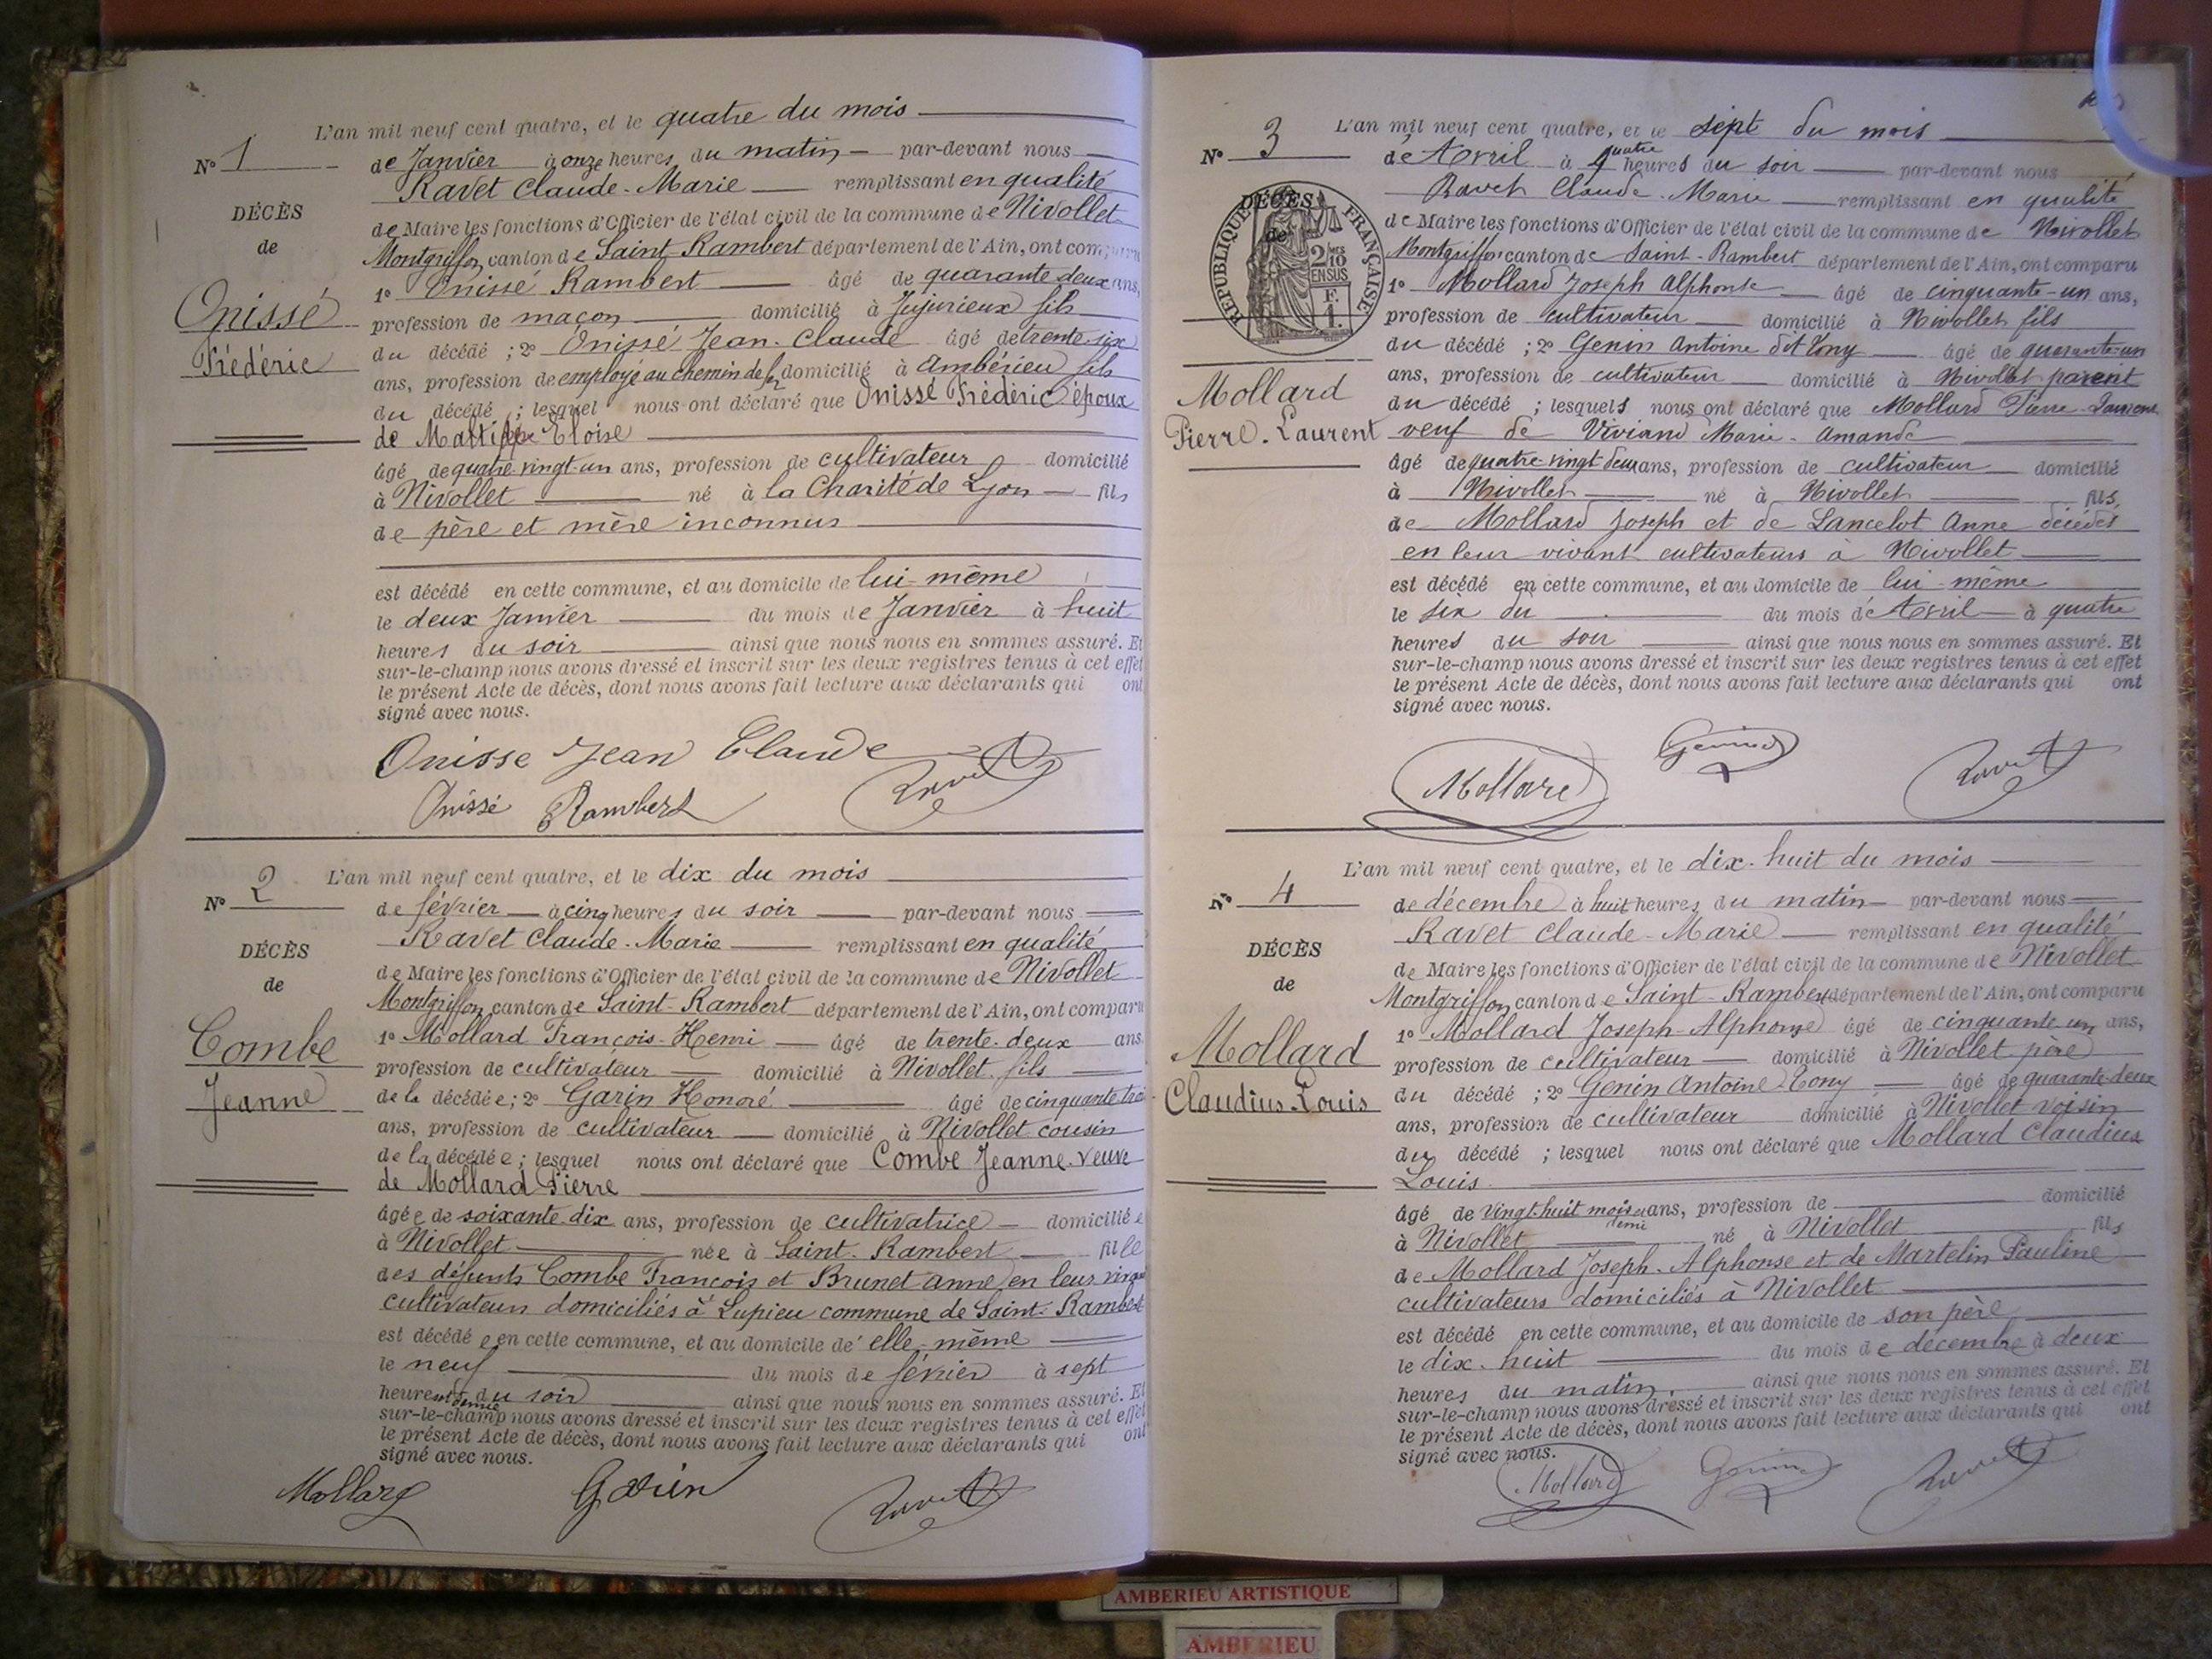 L'an mil neuf cent quatre, et le quatre du mois
N° 1
de Janvier à onze heures du matin par-devant nous
Ravet Claude-Marie remplissant en qualité
DÉCÈS
de Maire les fonctions d'Officier de l'état civil de la commune de Nivollet
de
Montgriffon, canton de Saint Rambert département de l'Ain, ont comparu
1° Onissé Rambert âgé de quarante deux ans,
Onissé
profession de maçon domicilié à Jujurieux fils
du décédé ; 2° Onissé Jean-Claude âgé de trente six
Frédéric
ans, profession de employé au chemin de fer domicilié à Ambérieu fils
du décédé ; lesquel nous ont déclaré que Onissé Frédéric époux
de Eloise
âgé de quatre vingt-un ans, profession de cultivateur domicilié
à Nivollet né à la Charité de Lyon fils
de père et mère inconnus
est décédé en cette commune, et au domicile de lui-même
le deux Janvier du mois de Janvier à huit
heures du soir ainsi que nous nous en sommes assuré. Et
sur-le-champ nous avons dressé et inscrit sur les deux registres tenus à cet effet
le présent Acte de décès, dont nous avons fait lecture aux déclarants qui ont
signé avec nous.
Onisse Jean Claude
Onissé Rambert Ravet
L'an mil neuf cent quatre, et le dix du mois
N° 2
de février à cinq heures du soir par-devant nous
Ravet Claude-Marie remplissant en qualité
DÉCÈS
de Maire les fonctions d'Officier de l'état civil de la commune de Nivollet
de
Montgriffon, canton de Saint-Rambert département de l'Ain, ont comparu
1° Mollard François-Henri âgé de trente-deux ans
Combe
profession de cultivateur domicilié à Nivollet fils
Jeanne
de la décédée ; 2° Garin Honoré âgé de cinquante trois
ans, profession de cultivateur domicilié à Nivollet cousin
de la décédée ; lesquel nous ont déclaré que Combe Jeanne veuve
de Mollard Pierre
âgée de soixante dix ans, profession de cultivatrice domiciliée
à Nivollet née à Saint-Rambert fille
des défunts Combe François et Brunet Anne en leur vivant
cultivateurs domiciliés à Lupieu commune de Saint-Rambert
est décédée en cette commune, et au domicile de elle-même
le neuf du mois de février à sept
heures et demie du soir ainsi que nous nous en sommes assuré. Et
sur-le-champ nous avons dressé et inscrit sur les deux registres tenus à cet effet
le présent Acte de décès, dont nous avons fait lecture aux déclarants qui ont
signé avec nous.
Mollard Garin Ravet
L'an mil neuf cent quatre, et le sept du mois
N° 3
de Avril à quatre heures du soir par-devant nous
Ravet Claude-Marie remplissant en qualité
DÉCÈS
de
RÉPUBLIQUE FRANÇAISE
2/10 EN SUS
F. 1.
de Maire les fonctions d'Officier de l'état civil de la commune de Nivollet
Montgriffon canton de Saint-Rambert département de l'Ain, ont comparu
1° Mollard Joseph Alphonse âgé de cinquante-un ans,
profession de cultivateur domicilié à Nivollet fils
du décédé ; 2° Genin Antoine dit Tony âgé de quarante-un
ans, profession de cultivateur domicilié à Nivollet parent
Mollard
du décédé ; lesquels nous ont déclaré que Mollard Pierre-Laurent
Pierre-Laurent
veuf de Viviand Marie-Amande
âgé de quatre vingt deux ans, profession de cultivateur domicilié
à Nivollet né à Nivollet fils
de Mollard Joseph et de Lancelot Anne décédés
en leur vivant cultivateurs à Nivollet
est décédé en cette commune, et au domicile de lui-même
le six du du mois de Avril à quatre
heures du soir ainsi que nous nous en sommes assuré. Et
sur-le-champ nous avons dressé et inscrit sur les deux registres tenus à cet effet
le présent Acte de décès, dont nous avons fait lecture aux déclarants qui ont
signé avec nous.
Mollard Genin Ravet
L'an mil neuf cent quatre, et le dix-huit du mois
N° 4
de décembre à huit heures du matin par-devant nous
Ravet Claude-Marie remplissant en qualité
DÉCÈS
de Maire les fonctions d'Officier de l'état civil de la commune de Nivollet
de
Montgriffon, canton de Saint-Rambert département de l'Ain, ont comparu
1° Mollard Joseph-Alphonse âgé de cinquante un ans,
Mollard
profession de cultivateur domicilié à Nivollet père
Claudius-Louis
du décédé ; 2° Genin Antoine Tony âgé de quarante-deux
ans, profession de cultivateur domicilié à Nivollet voisin
du décédé ; lesquel nous ont déclaré que Mollard Claudius
Louis
âgé de vingt-huit mois et demi ans, profession de domicilié
à Nivollet né à Nivollet fils
de Mollard Joseph-Alphonse et de Martelin Pauline
cultivateurs domiciliés à Nivollet
est décédé en cette commune, et au domicile de son père
le dix-huit du mois de décembre à deux
heures du matin ainsi que nous nous en sommes assuré. Et
sur-le-champ nous avons dressé et inscrit sur les deux registres tenus à cet effet
le présent Acte de décès, dont nous avons fait lecture aux déclarants qui ont
signé avec nous.
Mollard Genin Ravet
AMBERIEU ARTISTIQUE
AMBERIEU